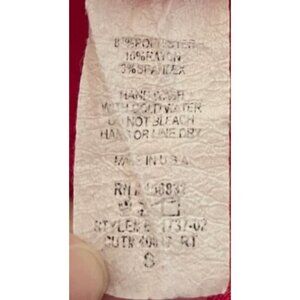 POLYESTER
RAYON
3% SPANDEX
HAND WASH
WITH COLD WATER
DO NOT BLEACH
HANG OR LINE DRY
MADE IN U.S.A
RN
STYLE# 1737-02
CUT# RT
S